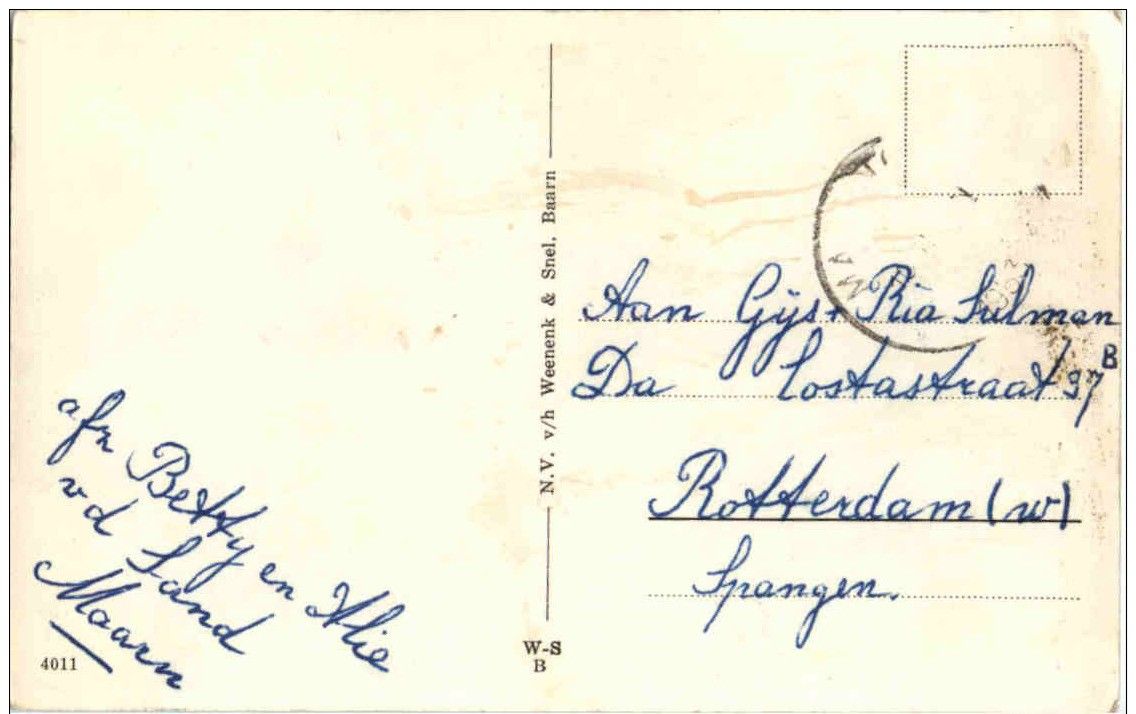 afz Betty en Alie
v d Sand
Maarn
4011
N.V. v/h Weenenk & Snel, Baarn
W-S
B
Aan Gijs + Ria Sulman
Da Costastraat 97 B
Rotterdam (w)
Spangen.